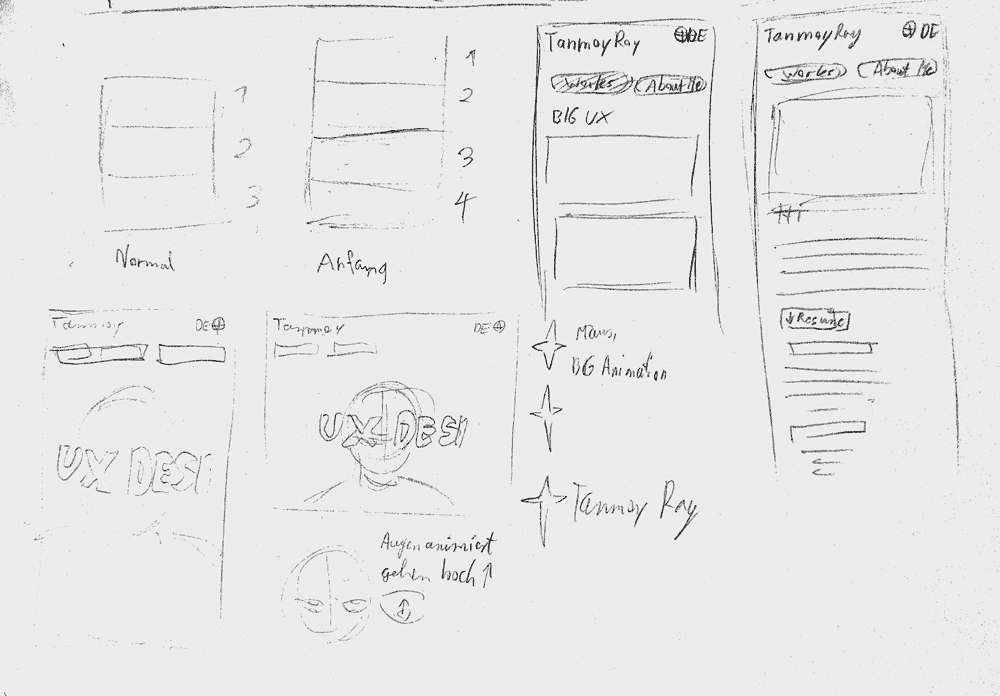 1
2
3
Normal
1
2
3
4
Anfang
TanmoyRay
DE
Works
About Me
BIG UX
TanmoyRay
DE
Works
About Me
Hi
↓Resume
Tanmoy
DE
UX DESI
Tanmoy
DE
UX DESI
Augen animiert
gehen hoch ↑
Maus,
BG Animation
Tanmoy Ray